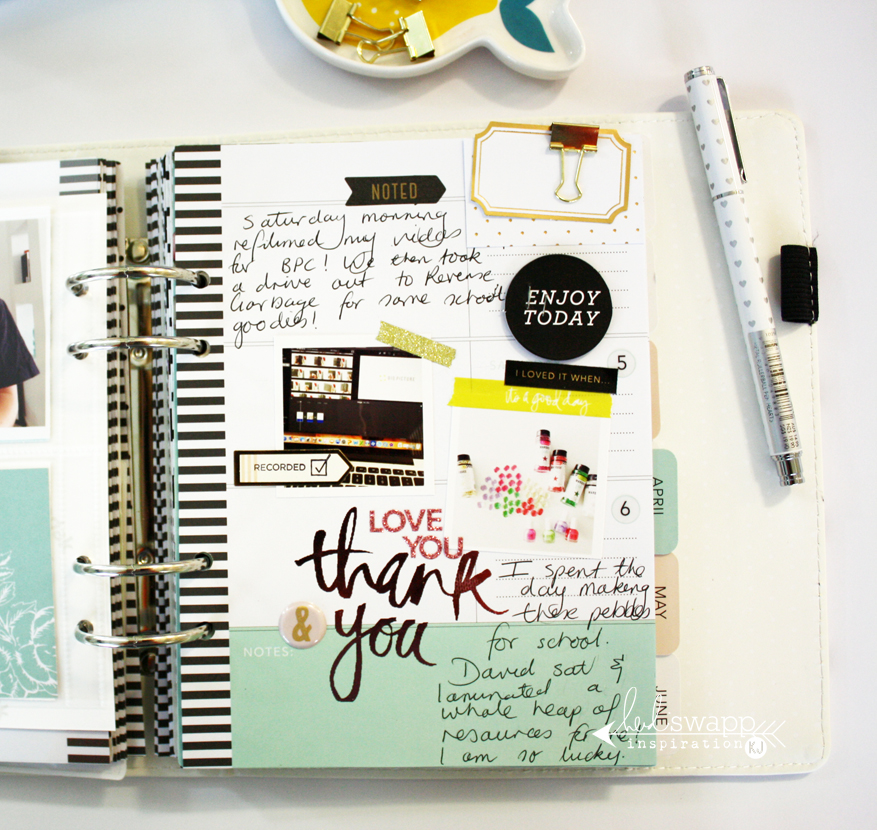 NOTED
Saturday morning
refilmed my video
for BPC! We then took
a drive out to Reverse
Garbage for some school
goodies!
ENJOY
TODAY
I LOVED IT WHEN...
5
it's a good day
RECORDED
6
APRIL
LOVE
YOU
thank
you
&
MAY
I spent the
day making
these pebbles
for school.
NOTES:
David sat &
laminated a
whole heap of
resources for me!
I am so lucky.
JUNE
heidi swapp
inspiration KJ